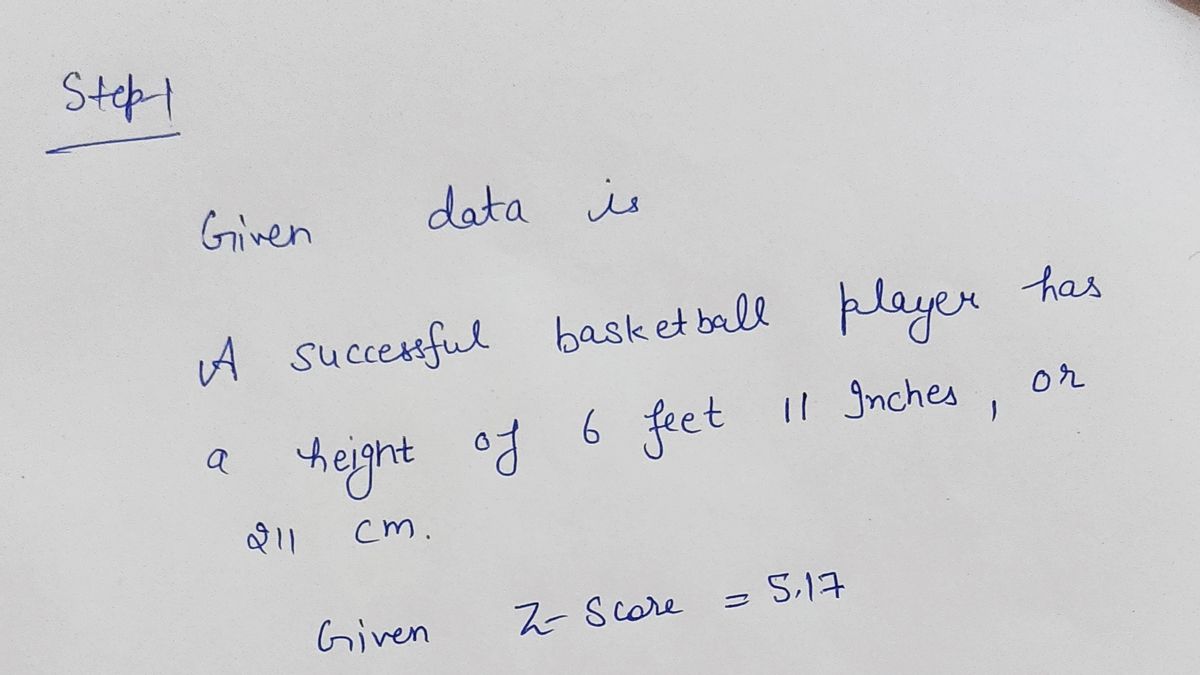 Step-1
Given data is
A successful basketball player has
a height of 6 feet 11 Inches, or
211 cm.
Given Z-Score = 5.17